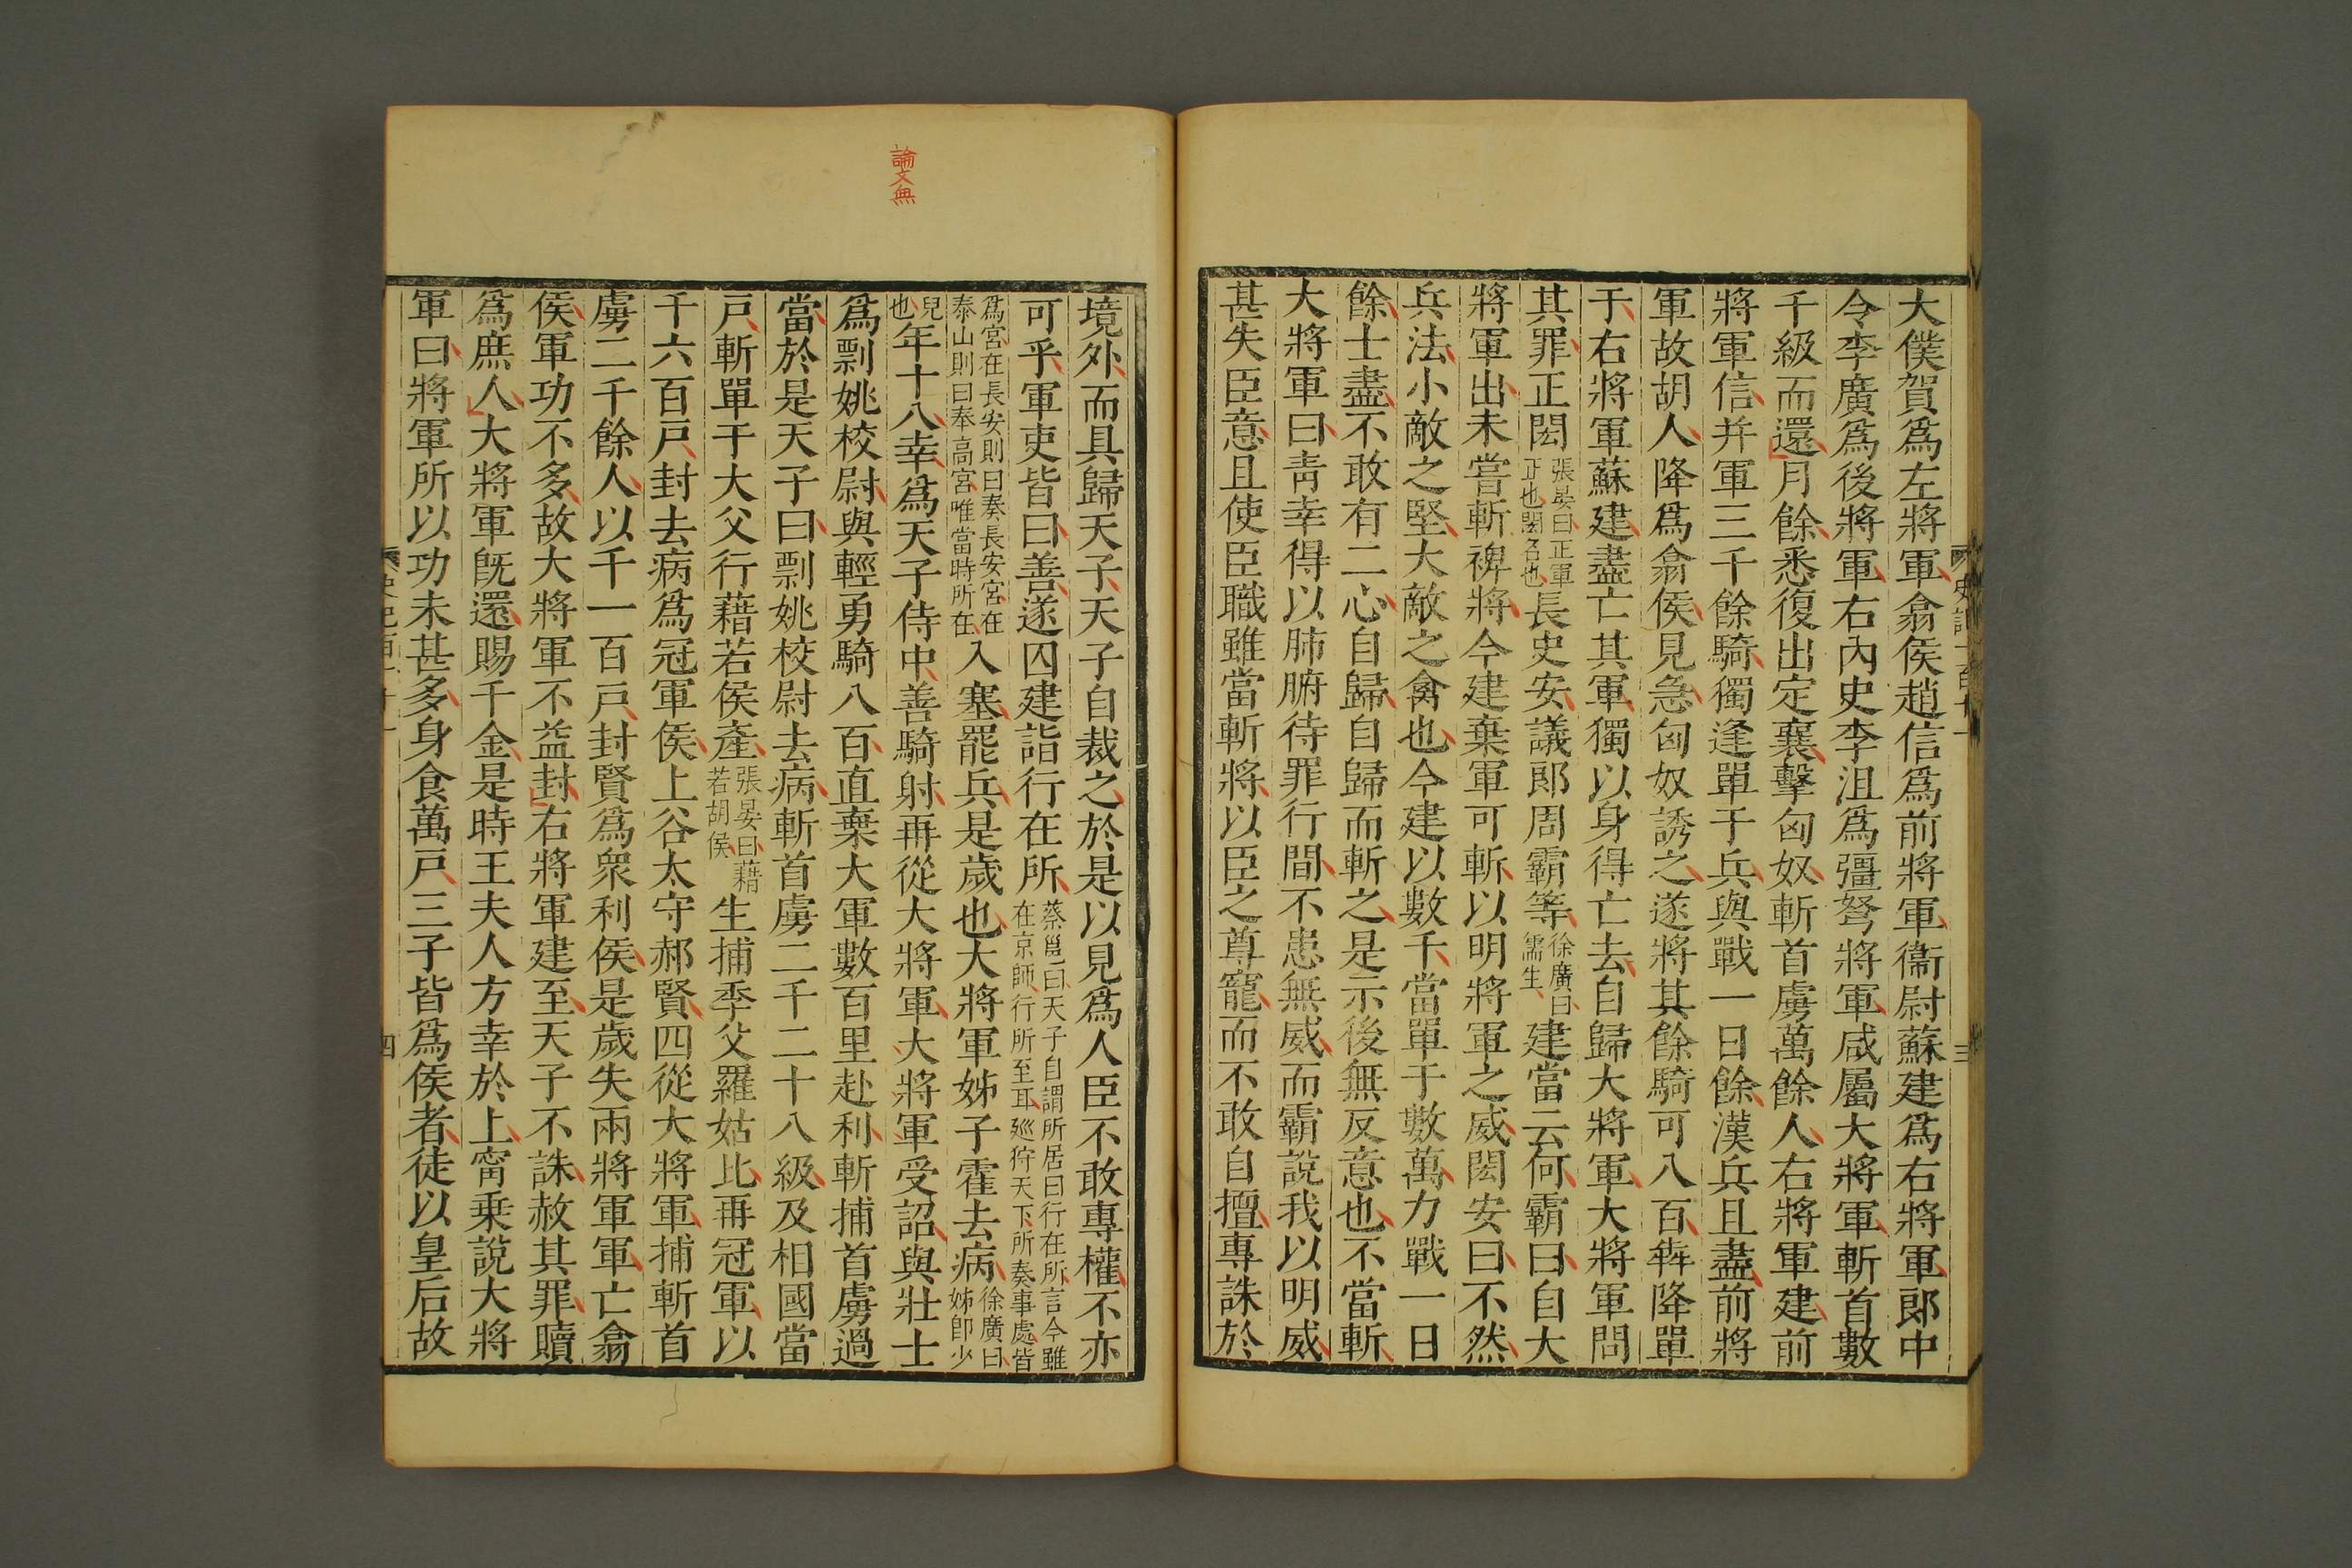 大僕賀爲左將軍翕侯趙信爲前將軍衞尉蘇建爲右將軍郎中
令李廣爲後將軍右內史李沮爲彊弩將軍咸屬大將軍斬首數
千級而還月餘悉復出定襄擊匈奴斬首虜萬餘人右將軍建前
將軍信并軍三千餘騎獨逢單于兵與戰一日餘漢兵且盡前將
軍故胡人降爲翕侯見急匈奴誘之遂將其餘騎可八百犇降單
于右將軍蘇建盡亡其軍獨以身得亡去自歸大將軍大將軍問
其罪正閎張晏曰正軍正也閎名也長史安議郎周霸等徐廣曰儒生建當云何霸曰自大
將軍出未嘗斬裨將今建棄軍可斬以明將軍之威閎安曰不然
兵法小敵之堅大敵之禽也今建以數千當單于數萬力戰一日
餘士盡不敢有二心自歸自歸而斬之是示後無反意也不當斬
大將軍曰青幸得以肺腑待罪行間不患無威而霸說我以明威
甚失臣意且使臣職雖當斬將以臣之尊寵而不敢自擅專誅於
三
論文無
境外而具歸天子天子自裁之於是以見爲人臣不敢專權不亦
可乎軍吏皆曰善遂囚建詣行在所蔡邕曰天子自謂所居曰行在所言今雖在京師行所至耳巡狩天下所奏事處皆
爲宮在長安則曰奏長安宮在泰山則曰奉高宮唯當時所在入塞罷兵是歲也大將軍姊子霍去病徐廣曰姊卽少
兒也年十八幸爲天子侍中善騎射再從大將軍大將軍受詔與壯士
爲剽姚校尉與輕勇騎八百直棄大軍數百里赴利斬捕首虜過
當於是天子曰剽姚校尉去病斬首虜二千二十八級及相國當
戶斬單于大父行藉若侯產張晏曰藉若胡侯生捕季父羅姑比再冠軍以
千六百戶封去病爲冠軍侯上谷太守郝賢四從大將軍捕斬首
虜二千餘人以千一百戶封賢爲衆利侯是歲失兩將軍軍亡翕
侯軍功不多故大將軍不益封右將軍建至天子不誅赦其罪贖
爲庶人大將軍旣還賜千金是時王夫人方幸於上甯乗說大將
軍曰將軍所以功未甚多身食萬戶三子皆爲侯者徒以皇后故
四